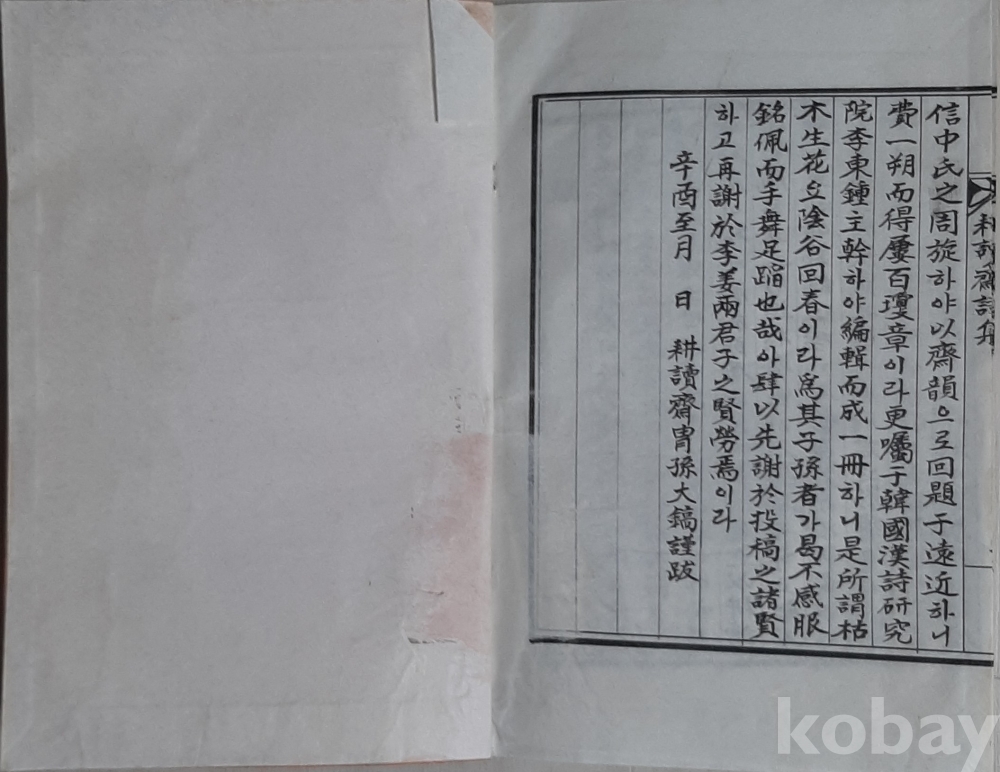 信中氏之周旋하야以齋韻으로回題于遠近하니
費一朔而得屢百瓊章이라更囑于韓國漢詩研究
院李東鍾主幹하야編輯而成一冊하니是所謂枯
木生花요陰谷回春이라爲其子孫者가曷不感服
銘佩而手舞足蹈也哉아肆以先謝於投稿之諸賢
하고再謝於李姜兩君子之賢勞焉이라
辛酉至月 日 耕讀齋胄孫大鎬謹跋
耕讀齋詩集
kobay